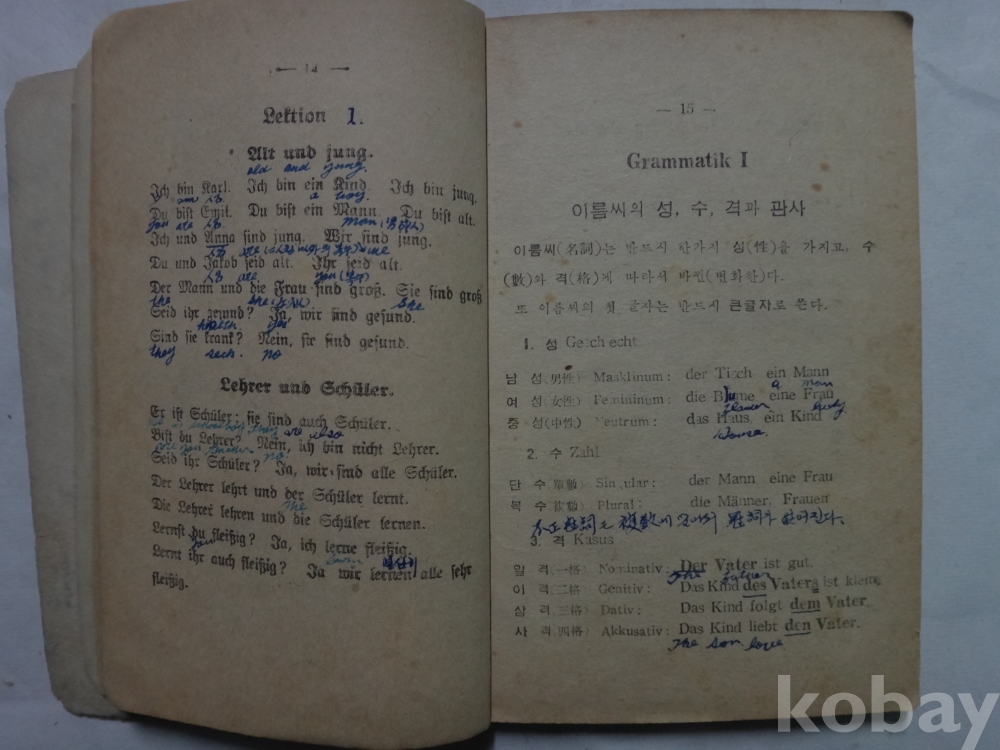 — 14 —
Lektion 1.
Alt und jung.
old and young.
Ich bin Karl. Ich bin ein Kind. Ich bin jung.
am a boy
Du bist Emil. Du bist ein Mann. Du bist alt.
you are man
Ich und Anna sind jung. Wir sind jung.
are
Du und Jakob seid alt. Ihr seid alt.
are you
Der Mann und die Frau sind groß. Sie sind groß
the she
Seid ihr gesund? Ja, wir sind gesund.
yes
Sind sie krank? Nein, sie sind gesund.
they no
Lehrer und Schüler.
Er ist Schüler; sie sind auch Schüler.
they are also
Bist du Lehrer? Nein, ich bin nicht Lehrer.
no
Seid ihr Schüler? Ja, wir sind alle Schüler.
Der Lehrer lehrt und der Schüler lernt.
the
Die Lehrer lehren und die Schüler lernen.
Lernst du fleißig? Ja, ich lerne fleißig.
you
Lernt ihr auch fleißig? Ja wir lernen alle sehr
fleißig.
— 15 —
Grammatik I
이름씨의 성, 수, 격과 관사
이름씨(名詞)는 반드시 한가지 성(性)을 가지고, 수
(數)와 격(格)에 따라서 바뀐(변화한)다.
또 이름씨의 첫 글자는 반드시 큰글자로 쓴다.
1. 성 Geschlecht
남 성(男性) Masklinum: der Tisch ein Mann
a man
여 성(女性) Femininum: die Blume eine Frau
flower
중 성(中性) Neutrum: das Haus, ein Kind
House.
2. 수 Zahl
단 수(單數) Singular: der Mann eine Frau
복 수(複數) Plural: die Männer, Frauen
3. 격 Kasus
일 격(一格) Nominativ: Der Vater ist gut.
The father
이 격(二格) Genitiv: Das Kind des Vaters ist klein
삼 격(三格) Dativ: Das Kind folgt dem Vater.
사 격(四格) Akkusativ: Das Kind liebt den Vater.
The son love
kobay